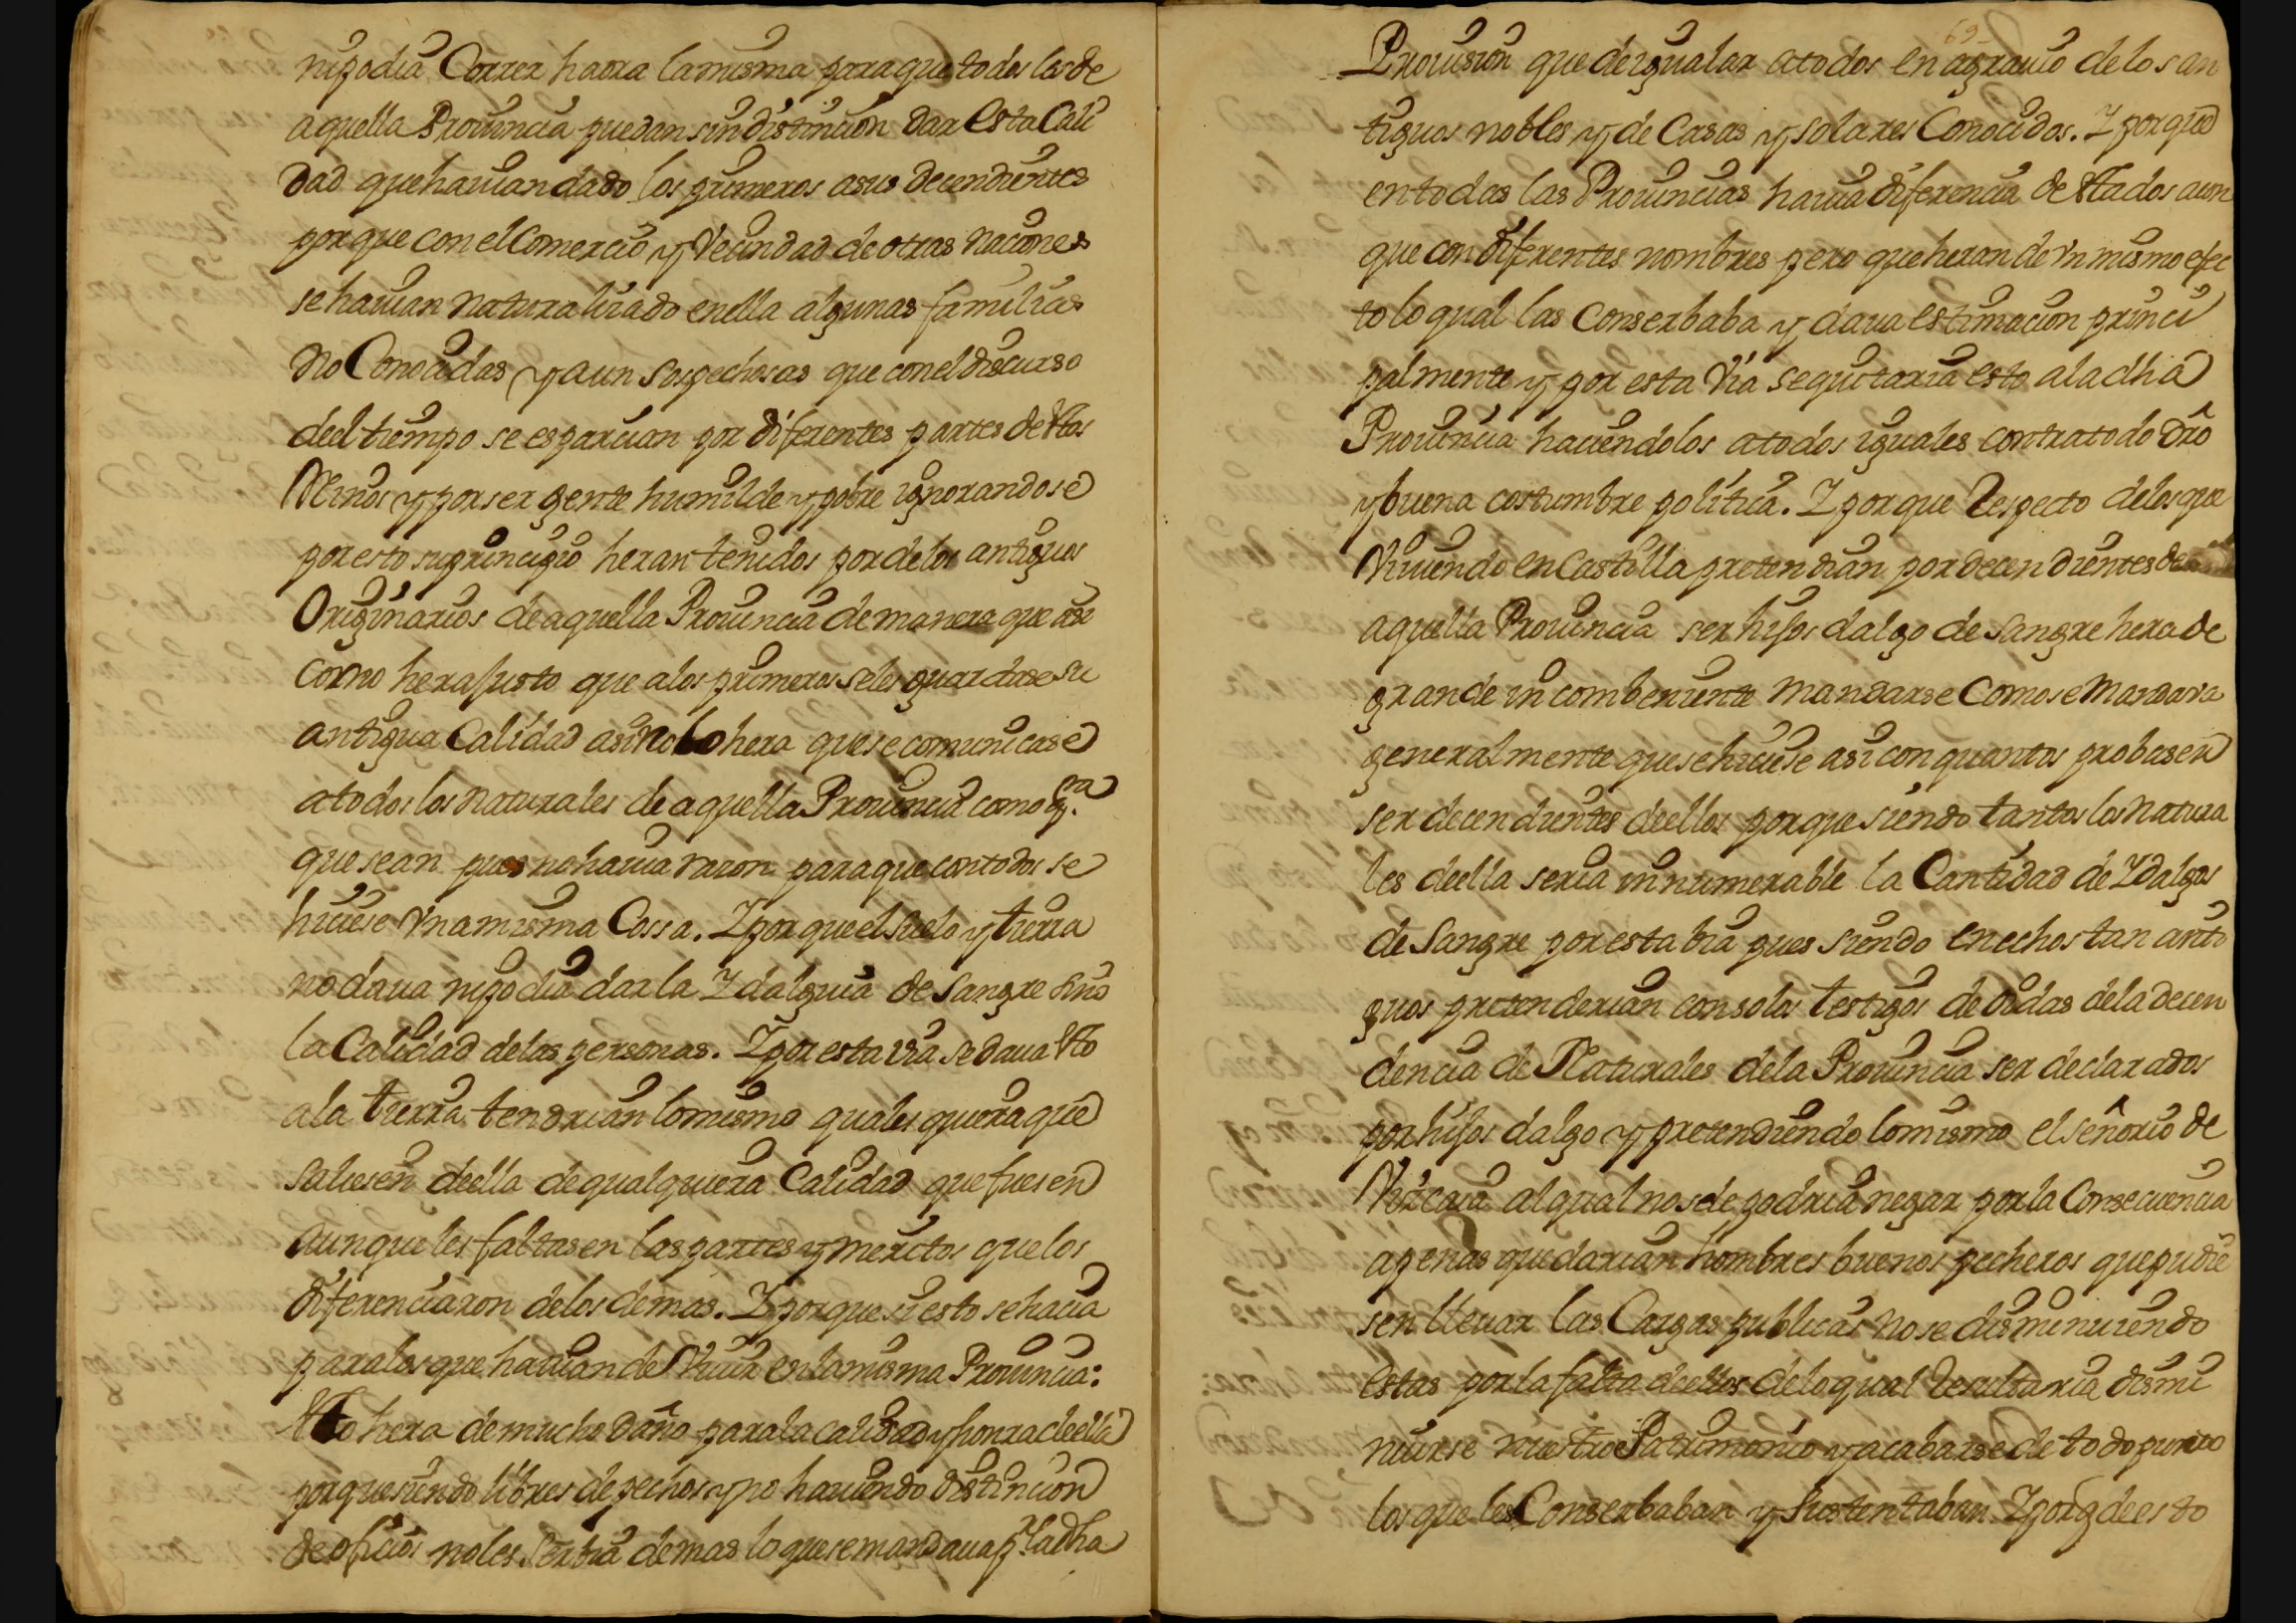 nipodia Correr haora lamisma paraque todos los de
aquella Prouincia puedan sin distincion dar esta Cali
dad que hauian dado los primeros asus decendientes
porque con el Comercio y Vecindad de otras naciones
se hauian naturaliçado en ella algunas familias
no Conocidas y aun sospechosas que con el discurso
deel tiempo se esparcian por diferentes partes destos
Reinos y por ser gente humilde y pobre ignorandose
por esto su principio heran tenidos por delos antiguos
Originarios de aquella Prouincia de manera que asi
como hera justo que alos primeros seles guardase su
antigua Calidad asi no lo hera que se comunicase
atodos los naturales de aquella Prouincia como q.ra
que sean pues no hauia raçon para que con todos se
hiciese Vna misma Cossa. Y porque el suelo y tierra
no daua ni podia dar la Ydalguia de sangre sino
la Calidad delas personas. Y por esta via se daua esto
ala tierra tendrian lo mismo quales quiera que
saliesen deella de qualquiera Calidad que fuesen
aunque les faltasen las partes y meritos que los
diferenciaron delos demas. Y porque si esto se hacia
para los que hauian de Viuir en la misma Prouincia:
esto hera de mucho daño para la calidad y honra deella
porque siendo libres de pechos y no hauiendo distincion
de oficios no les serbia demas lo que se mandaua p.r la dha
69
Prouision que de igualar atodos en agrauio delos an
tiguos nobles y de Casas y solares Conocidos. Y porque
en todas las Prouincias hauia diferencia de estados aun
que con diferentes nombres pero que heran de Vn mismo efec
to lo qual las Conserbaba y daua estimacion princi
palmente y por esta Via se quitaria esto ala dha
Prouincia haciendolos atodos iguales contra todo dro
y buena costumbre politica. Y porque Respecto delos que
Viuiendo en Castilla pretendian por decendientes de
aquella Prouincia ser hijos dalgo de sangre hera de
grande incombeniente mandarse Como se mandaua
generalmente que se hiciese asi con quantos probasen
ser decendientes deellos porque siendo tantos los natura
les deella seria innumerable la Cantidad de Ydalgos
de sangre por esta bia pues siendo en echos tan anti
guos pretenderian con solos testigos de oidas dela decen
dencia de Naturales dela Prouincia ser declarados
por hijos dalgo y pretendiendo lo mismo el señorio de
Vizcaia al qual no sele podria negar por la Consecuencia
apenas quedarian hombres buenos pecheros que pudie
sen lleuar las Cargas publicas no se disminuiendo
estas por la falta deellos delo qual Resultaria dismi
nuirse nuestro Patrimonio y acabarse de todo punto
los que les Conserbaban y sustentaban. Y porq deesto